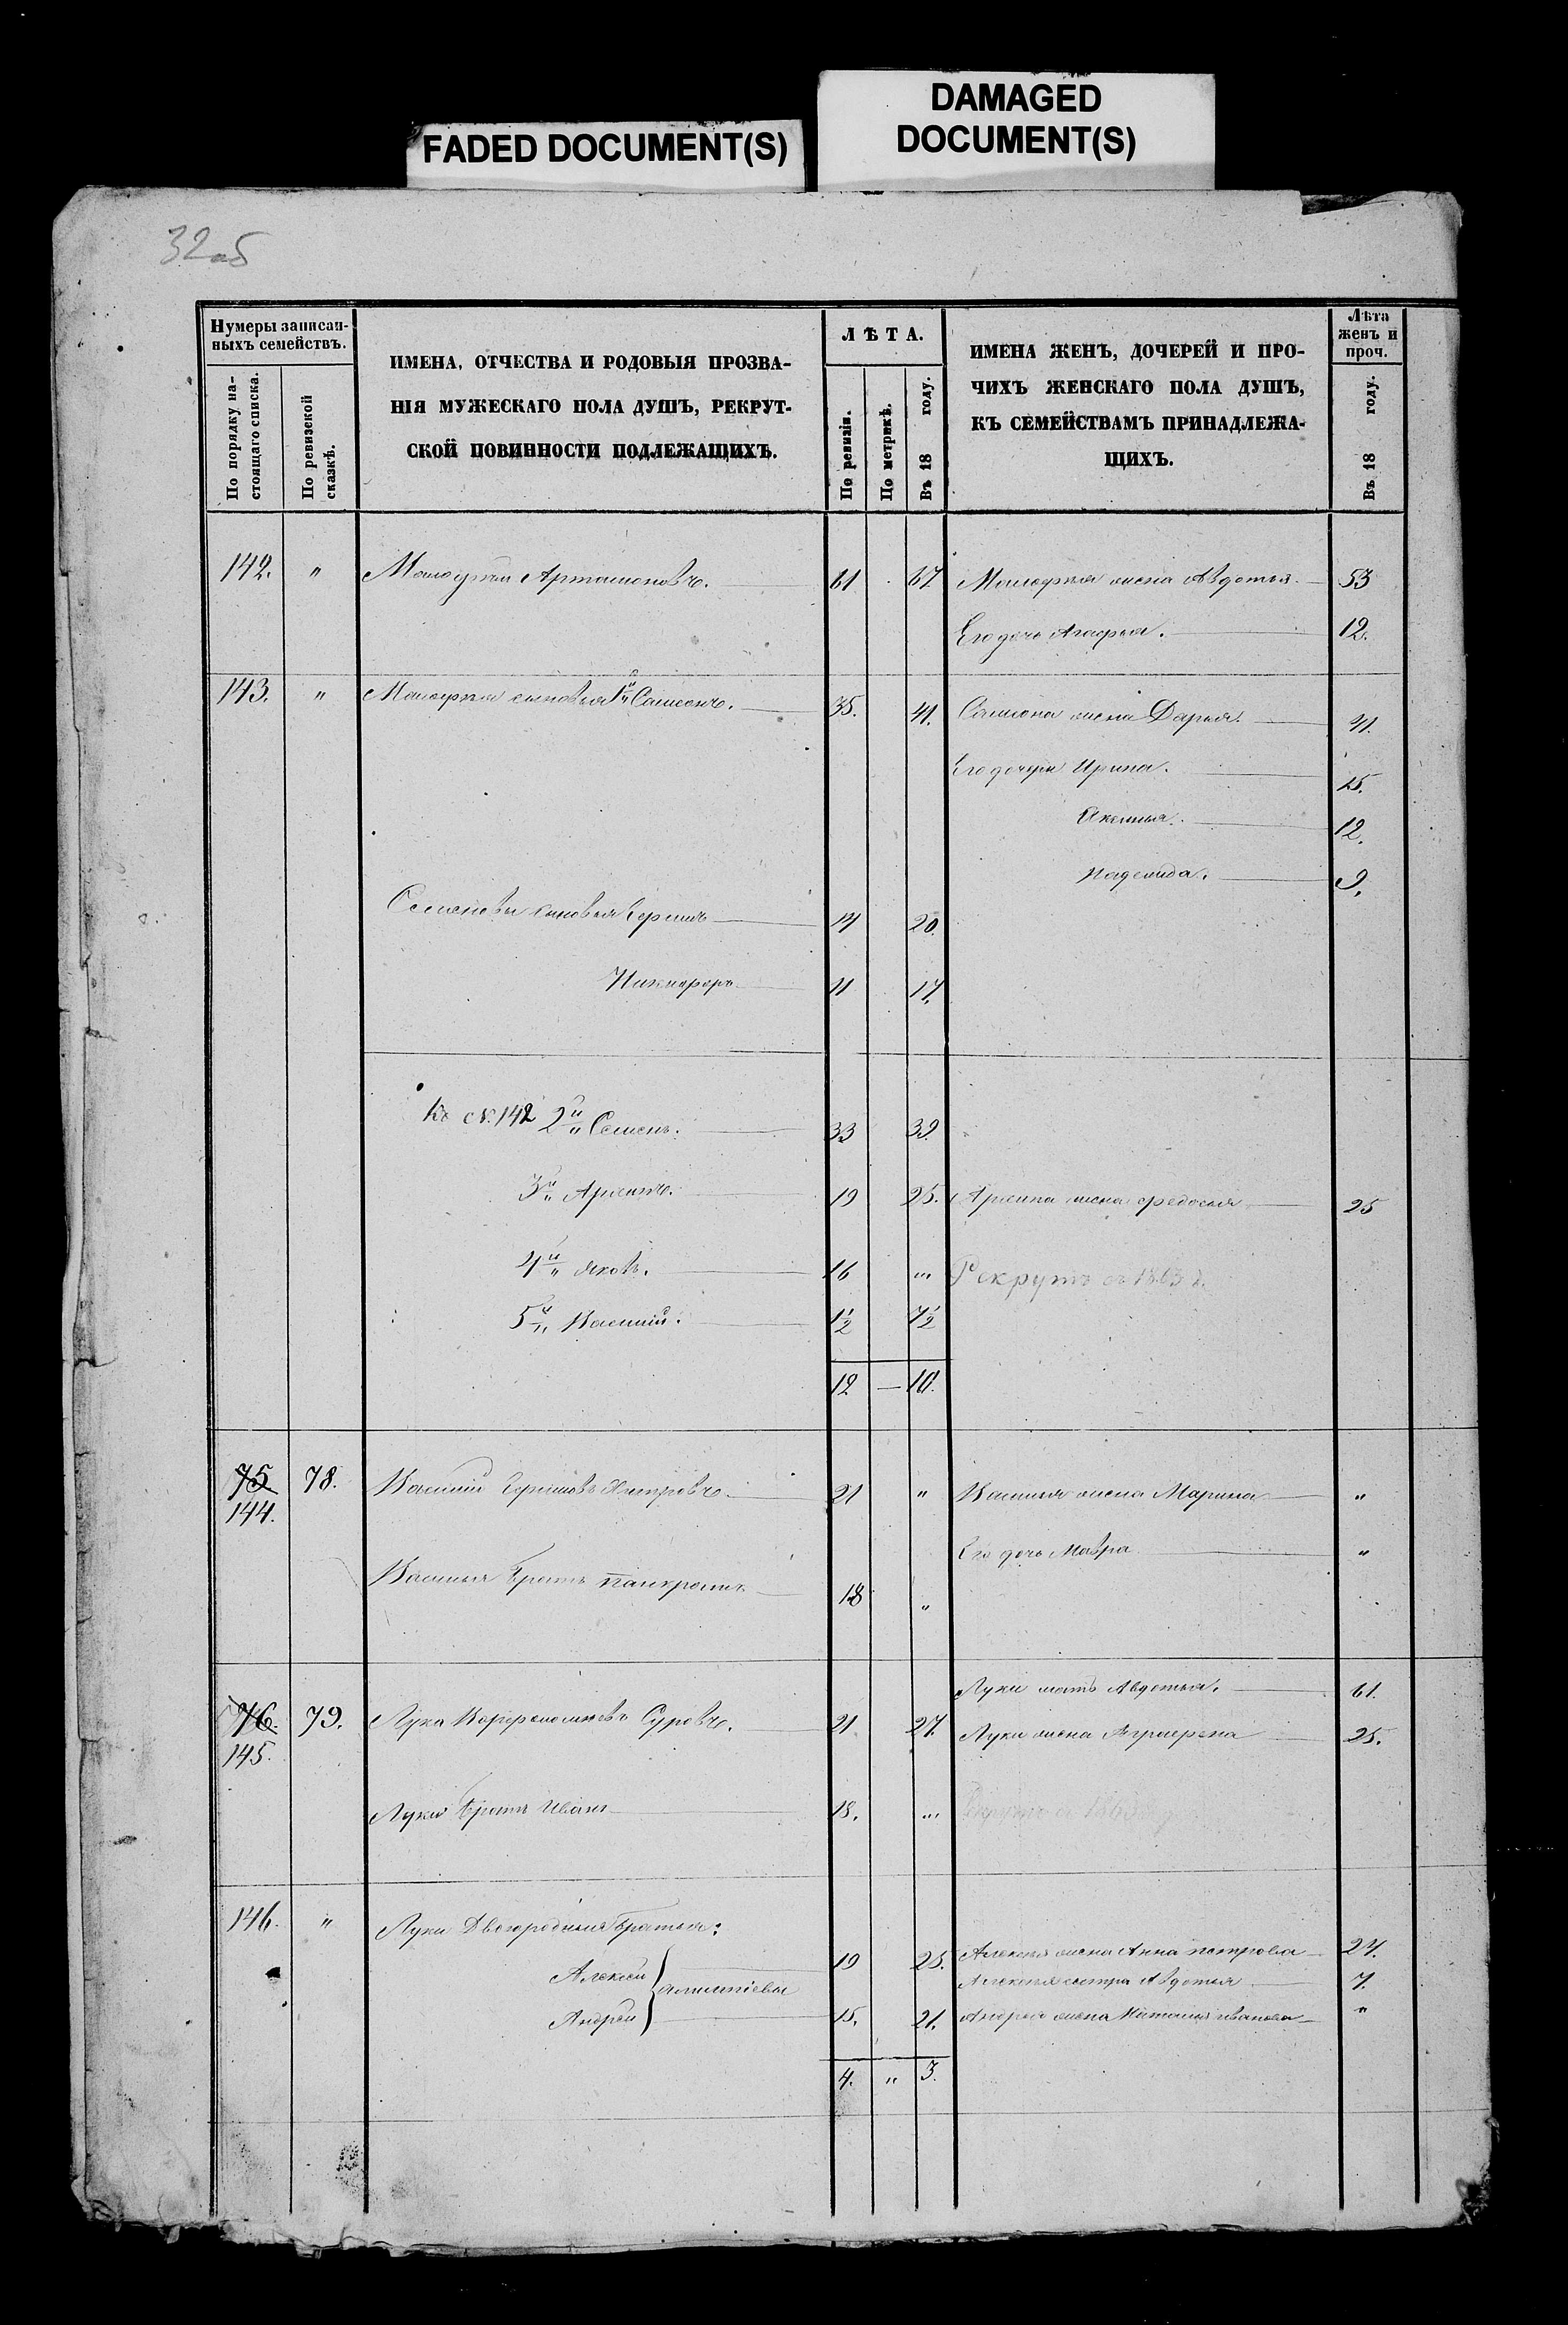 FADED DOCUMENT(S)
DAMAGED
DOCUMENT(S)
32 об
Нумеры записан-
ныхъ семействъ.
По порядку на-
стоящаго списка.
По ревизской
сказкѣ.
ИМЕНА, ОТЧЕСТВА И РОДОВЫЯ ПРОЗВА-
НІЯ МУЖЕСКАГО ПОЛА ДУШЪ, РЕКРУТ-
СКОЙ ПОВИННОСТИ ПОДЛЕЖАЩИХЪ.
ЛѢТА.
По ревизіи.
По метрикѣ.
Въ 18 году.
ИМЕНА ЖЕНЪ, ДОЧЕРЕЙ И ПРО-
ЧИХЪ ЖЕНСКАГО ПОЛА ДУШЪ,
КЪ СЕМЕЙСТВАМЪ ПРИНАДЛЕЖА-
ЩИХЪ.
Лѣта
женъ и
проч.
Въ 18 году.
142. " Артамоновъ. 61 67 жена Авдотья 53
Его дочь Агафья. 12.
143. " сыновья 1й Самсонъ. 35. 41. Самсона жена Дарья. 41.
Его дочери Ирина. 15.
Аксинья. 12.
Надежда. 9.
сыновья 14 20.
Никифоръ 11 17.
Къ №. 142 2й Семенъ. 33 39.
3й Архипъ. 19 25. Архипа жена Федосья 25
4й Яковъ. 16 " Рекрутъ въ 1863 г.
5й Василий. 1½ 7½
12 — 10.
75 78. Василий 21 " Василья жена Марина "
144.
Его дочь Мавра "
Василья братъ Панкратъ 18 "
Луки мать Авдотья. 61.
76. 79. Лука Суровъ. 21 27. Луки жена Аграфена 25.
145.
Луки братъ Иванъ 18. "
146. " Луки Двоюродныя братья:
Алексей 19 25. Алексея жена Анна Петрова 27.
Алексея сестра Авдотья 7.
Андрей 15. 21. Андрея жена Иванова "
4. " 3.